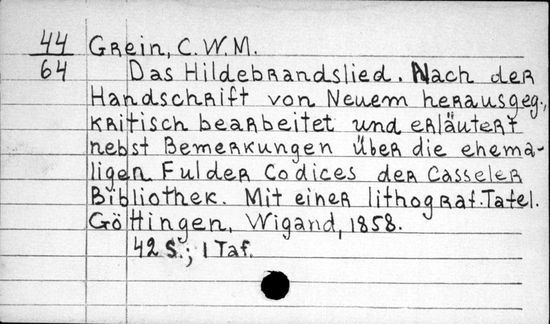 44 Grein, C.W.M.
64 Das Hildebrandslied. Nach der
Handschrift von Neuem herausgeg.,
kritisch bearbeitet und erläutert
nebst Bemerkungen über die ehema-
ligen Fulder Codices der Casseler
Bibliothek. Mit einer lithograf. Tafel.
Göttingen, Wigand, 1858.
42 S.; 1 Taf.